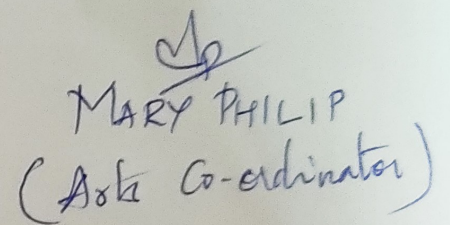 MARY PHILIP
(Arts Co-ordinator)